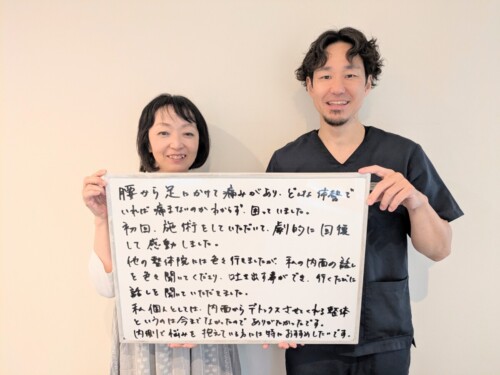 腰から足にかけて痛みがあり、どんな体勢で
いれば痛まないのかわからず、困っていました。
初回、施術をしていただいて、劇的に回復
して感動しました。
他の整体院にも色々行きましたが、私の内面の話し
を色々聞いてくださり、吐き出す事ができ、行くたびに
話しを聞いていただきました。
私個人としては、内面からデトックスさせてくれる整体
というのは今までなかったのでありがたかったです。
内側で悩みを抱えている方には特におすすめしたいです。